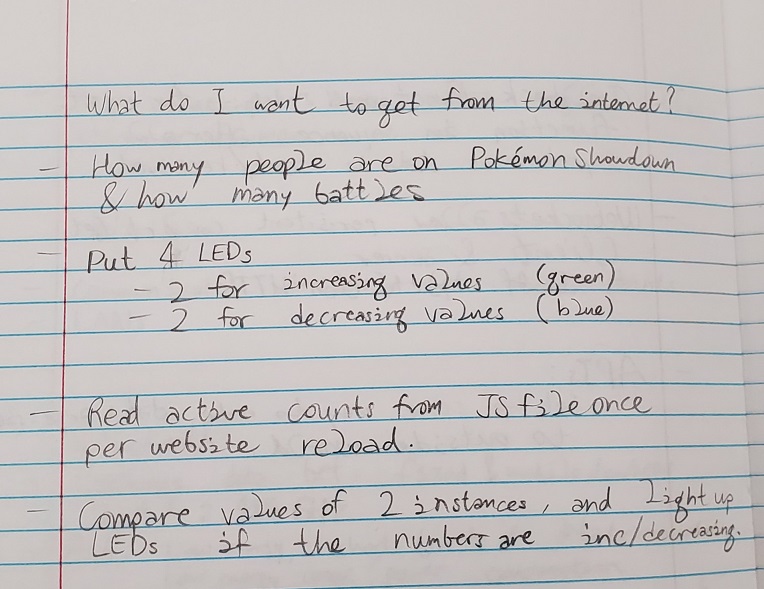 What do I want to get from the internet?
- How many people are on Pokémon Showdown
& how many battles
- Put 4 LEDs
- 2 for increasing values (green)
- 2 for decreasing values (blue)
- Read active counts from JS file once
per website reload.
- Compare values of 2 instances, and light up
LEDs if the numbers are inc/decreasing.